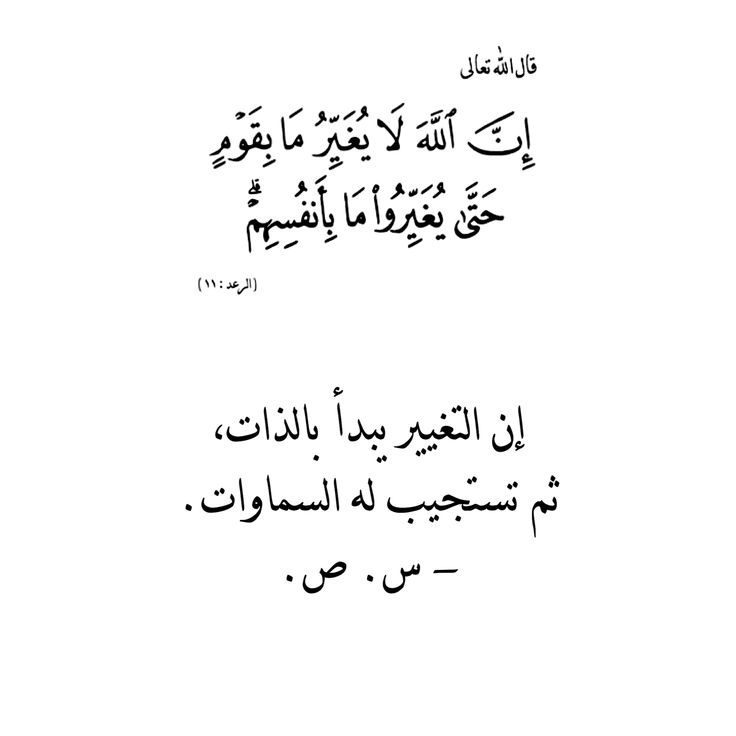 قال الله تعالى
إِنَّ ٱللَّهَ لَا يُغَيِّرُ مَا بِقَوۡمٍ
حَتَّىٰ يُغَيِّرُواْ مَا بِأَنفُسِهِمۡۗ
(الرعد: ١١)
إن التغيير يبدأ بالذات،
ثم تستجيب له السماوات.
– س. ص.